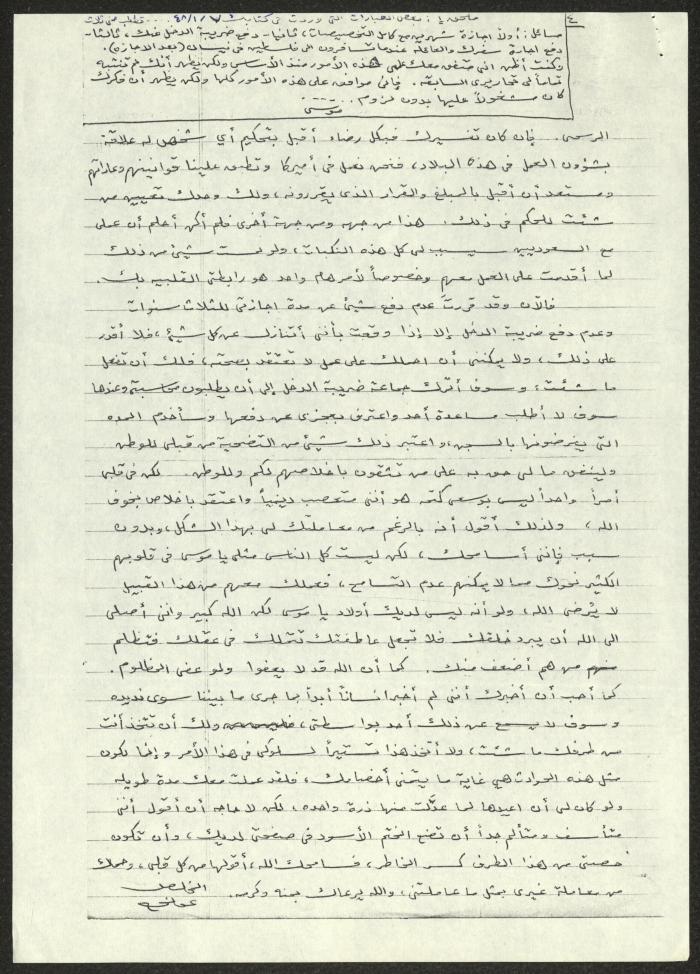 ٤
ملحق بـ: بعض العبارات التي وردت في كتابك ٤٨/١/٧
مسائل: أولاً اجازة شهرين مع كامل التخصيصات، ثانياً - دفع ضريبة الدخل عنك، ثالثاً -
دفع اجازة سفرك والعائلة عندما تسافرون الى فلسطين في نيسان (بعد الاجازة).
وكنت أظن اني متفق معك على هذه الأمور منذ الأساس ولكن يظهر أنك لم تنتبه
تماماً الى تحاريري السابقة. فإني موافق على هذه الأمور كلها ولكن يظهر أن فكرك
كان مشغولاً عليها بدون لزوم.....
موسى
الرسمي. فإن كان تفسيرك فبكل رضاء أقبل بتحكيم أي شخص له علاقة
بشؤون العمل في هذه البلاد، فنحن نعمل في أميركا وتطبق علينا قوانينهم وعاداتهم
ومستعد أن أقبل بالمبلغ والقرار الذي يقررونه، ولك وحدك تعيين من
شئت للحكم في ذلك. هذا من جهه ومن جهة أخرى فلم أكن أحلم أن عملي
مع السعوديين سيسبب لي كل هذه النكبات، ولو لمست شيئ من ذلك
لما أقدمت على العمل معهم وخصوصاً لأمر هام واحد هو رابطتي القلبيه بك.
فالآن وقد قررتَ عدم دفع شيئ عن مدة اجازتي للثلاث سنوات
وعدم دفع ضريبة الدخل إلا إذا وقعت بأنني أتنازل عن كل شيئ، فلا أقدر
على ذلك، ولا يمكنني أن احملك على عمل لا تعتقد بصحته، فلك أن تفعل
ما شئت، وسوف أترك جماعة ضريبة الدخل إلى أن يطلبون محاسبة وعندها
سوف لا أطلب مساعدة أحد واعترف بعجزي عن دفعها وسأخدم المده
التي يفرضونها بالسجن، واعتبر ذلك شيئ من التضحية من قبلي للوطن
ولينفق ما لي من حق به على من تثقون باخلاصهم لكم وللوطن. لكن في قلبي
أمراً واحداً ليس بوسعي كتمه هو أنني متعصب دينياً واعتقد باخلاص بخوف
الله، ولذلك أقول أنه بالرغم من معاملتك لي بهذا الشكل، وبدون
سبب فإنني أسامحك، لكن ليست كل الناس مثلي يا موسى في قلوبهم
الكثير نحوك مما لا يمكنهم عدم التسامح، فعملك معهم من هذا القبيل
لا يُرضي الله، ولو أنه ليس لديك أولاد يا موسى لكن الله كبير وانني أصلي
الى الله أن يبرد خلقك فلا تجعل عاطفتك تتملك في عقلك فتظلم
من هم أضعف منك. كما أن الله قد لا يعفوا ولو عفى المظلوم.
كما أحب أن أخبرك أنني لم أخبر انساناً أبداً بما جرى ما بيننا سوى فديده
وسوف لا يسمع عن ذلك أحد بواسطتي، ولك أن تتخذ أنت
من طرفك ما شئت، ولا أتخذ هذا تستيراً لسلوكي في هذا الأمر وإنما لكون
مثل هذه الحوادث هي غاية ما يتمنى أخصامك، فلقد عملت معك مدة طويله
ولو كان لي أن اعيدها لما عدّلت منها ذرة واحده، لكن لا حاجه أن أقول أنني
متأسف ومتألم جداً أن تضع الختم الأسود في صفحتي لديك، وأن تكون
حصتي من هذا الطرف كسر الخاطر، فسامحك الله، أقولها من كل قلبي، وحماك
من معاملة غيري بمثل ما عاملتني، والله يرعاك بمنه وكرمه.
المخلص